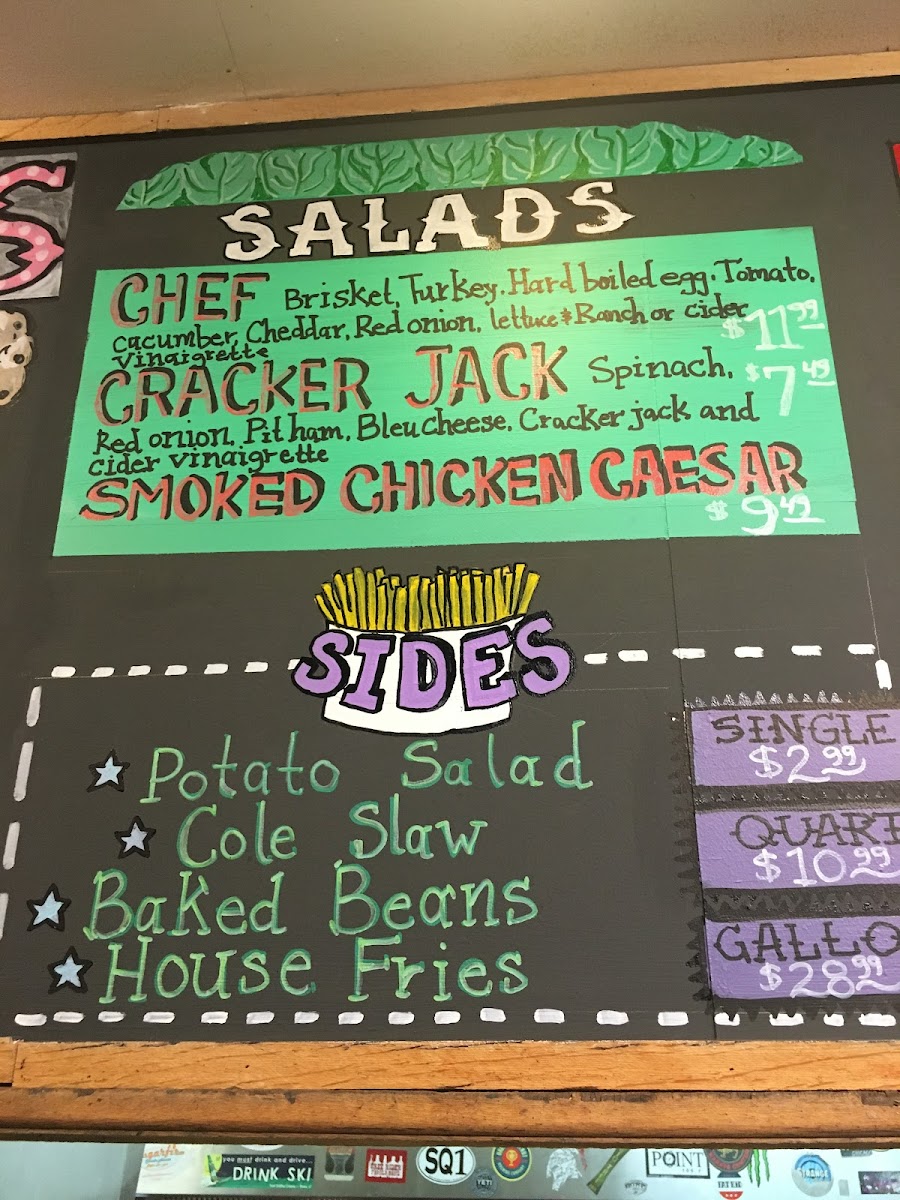 SALADS
CHEF Brisket, Turkey, Hard boiled egg, Tomato,
cacumber, Cheddar, Red onion, lettuce & Ranch or cider
vinaigrette
$11.99
CRACKER JACK Spinach,
$7.49
Red onion, Pit ham, Bleu cheese, Cracker jack and
cider vinaigrette
SMOKED CHICKEN CAESAR
$9.49
SIDES
Potato Salad
Cole Slaw
Baked Beans
House Fries
SINGLE
$2.99
QUART
$10.99
GALLO
$28.99
you must drink and drive...
DRINK SKI
SQ1
YETI
POINT
STRANGE